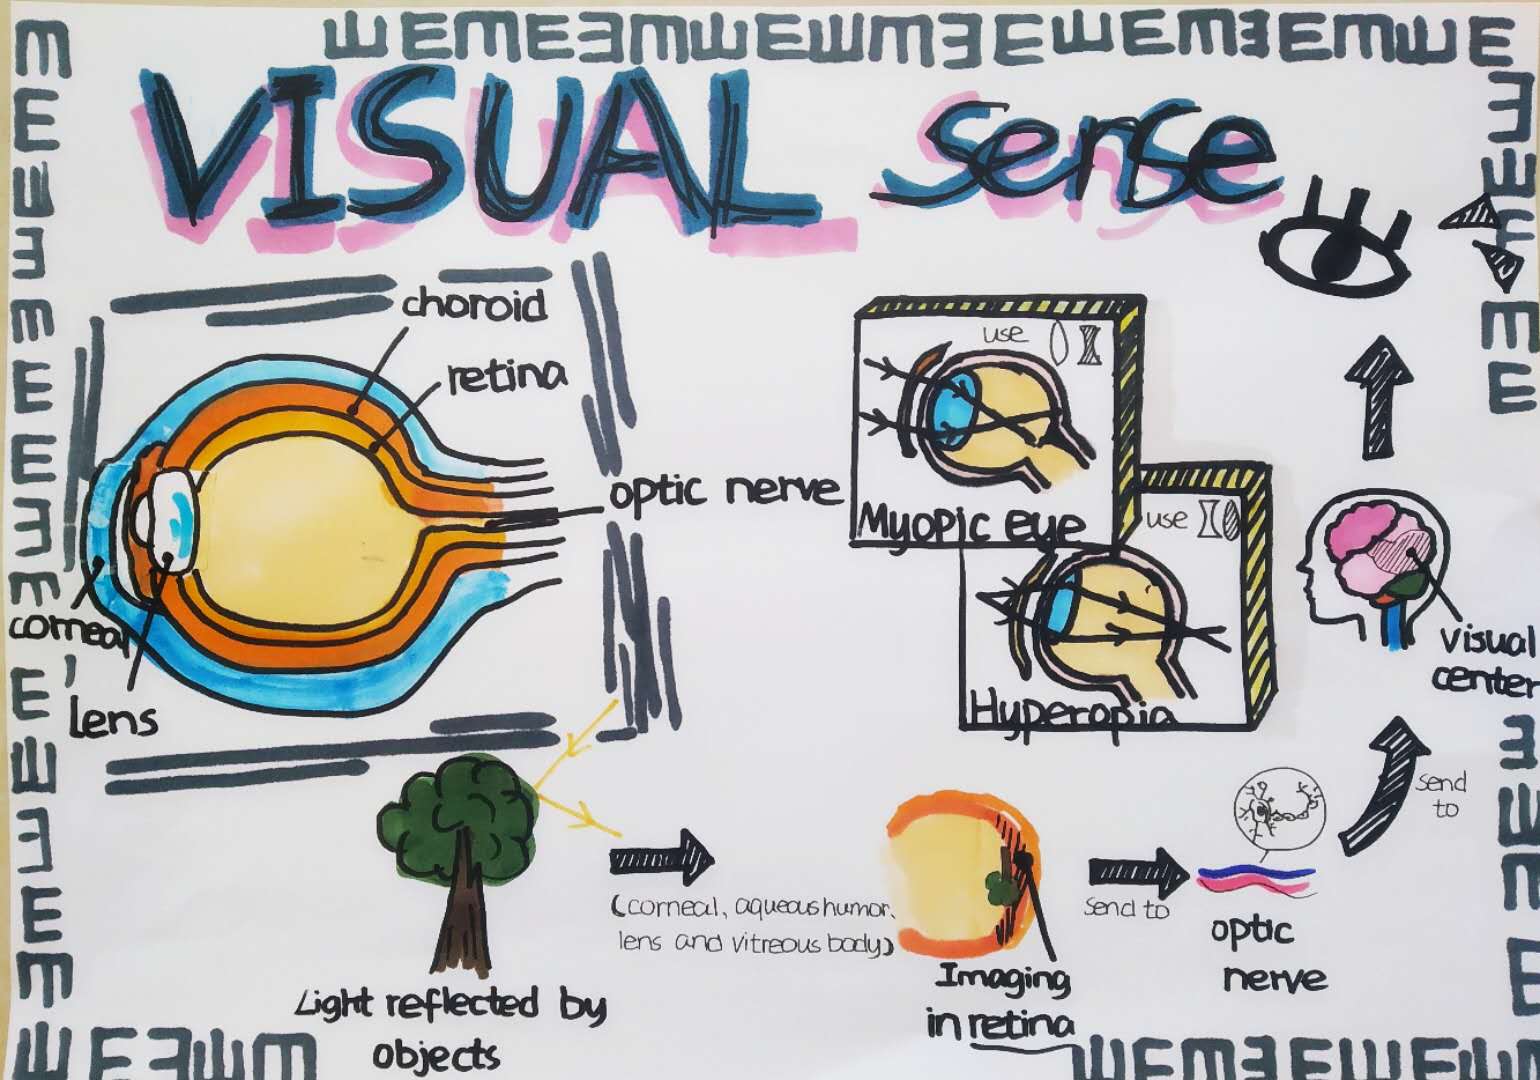 VISUAL sense
choroid
retina
optic nerve
corneal
lens
use
Myopic eye
use
Hyperopia
visual
center
send
to
(corneal, aqueous humor,
lens and vitreous body)
send to
optic
nerve
Imaging
in retina
Light reflected by
objects